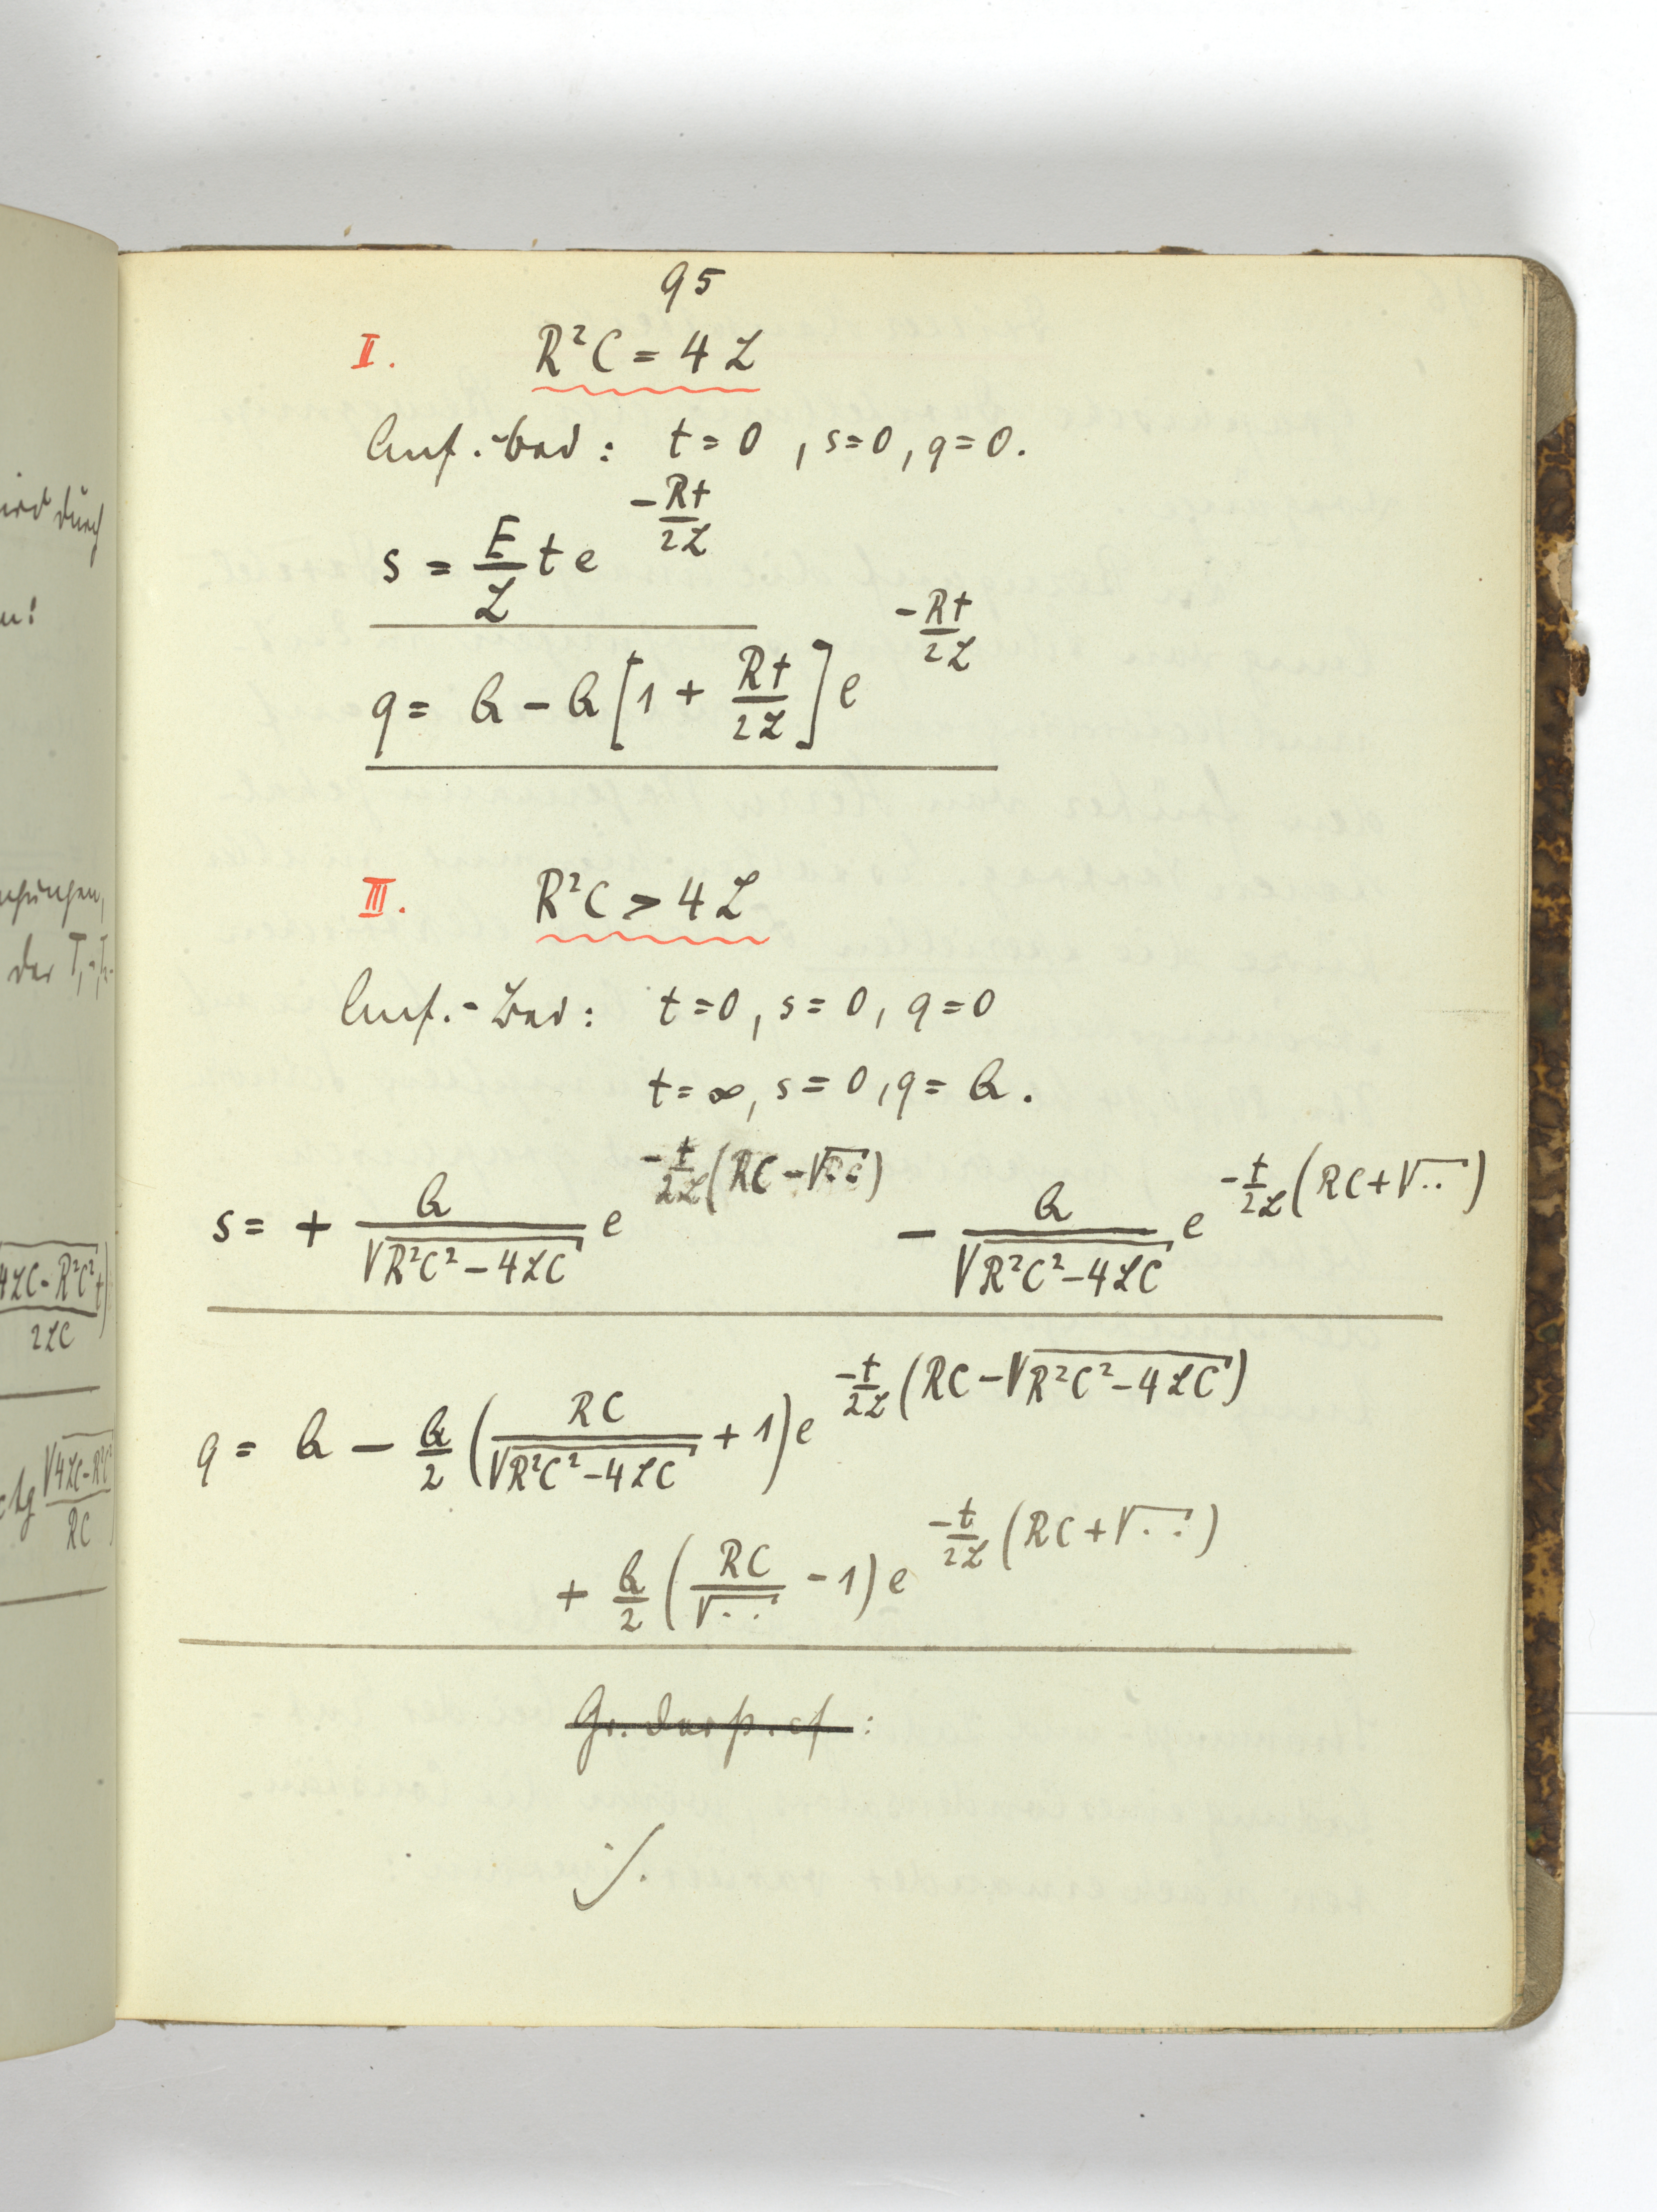 95
II. R²C = 4L
Anf.-Bed: t=0, s=0, q=0.
s = E/L t e^(-Rt/2L)
q = Q - Q[1 + Rt/2L] e^(-Rt/2L)
III. R²C > 4L
Anf.-Bed: t=0, s=0, q=0
t=∞, s=0, q=Q.
s = + Q/√(R²C²-4LC) e^(-t/2L (RC-√..)) - Q/√(R²C²-4LC) e^(-t/2L (RC+√..))
q = Q - Q/2 (RC/√(R²C²-4LC) + 1) e^(-t/2L (RC-√(R²C²-4LC)))
+ Q/2 (RC/√.. - 1) e^(-t/2L (RC+√..))
·/.
durch
der
4LC-R²C² t
2LC
√4LC-R²C²
RC